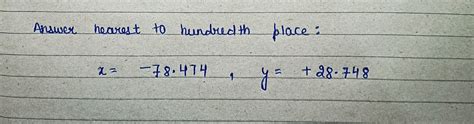 Answer nearest to hundredth place:
x = -78.474, y = +28.748